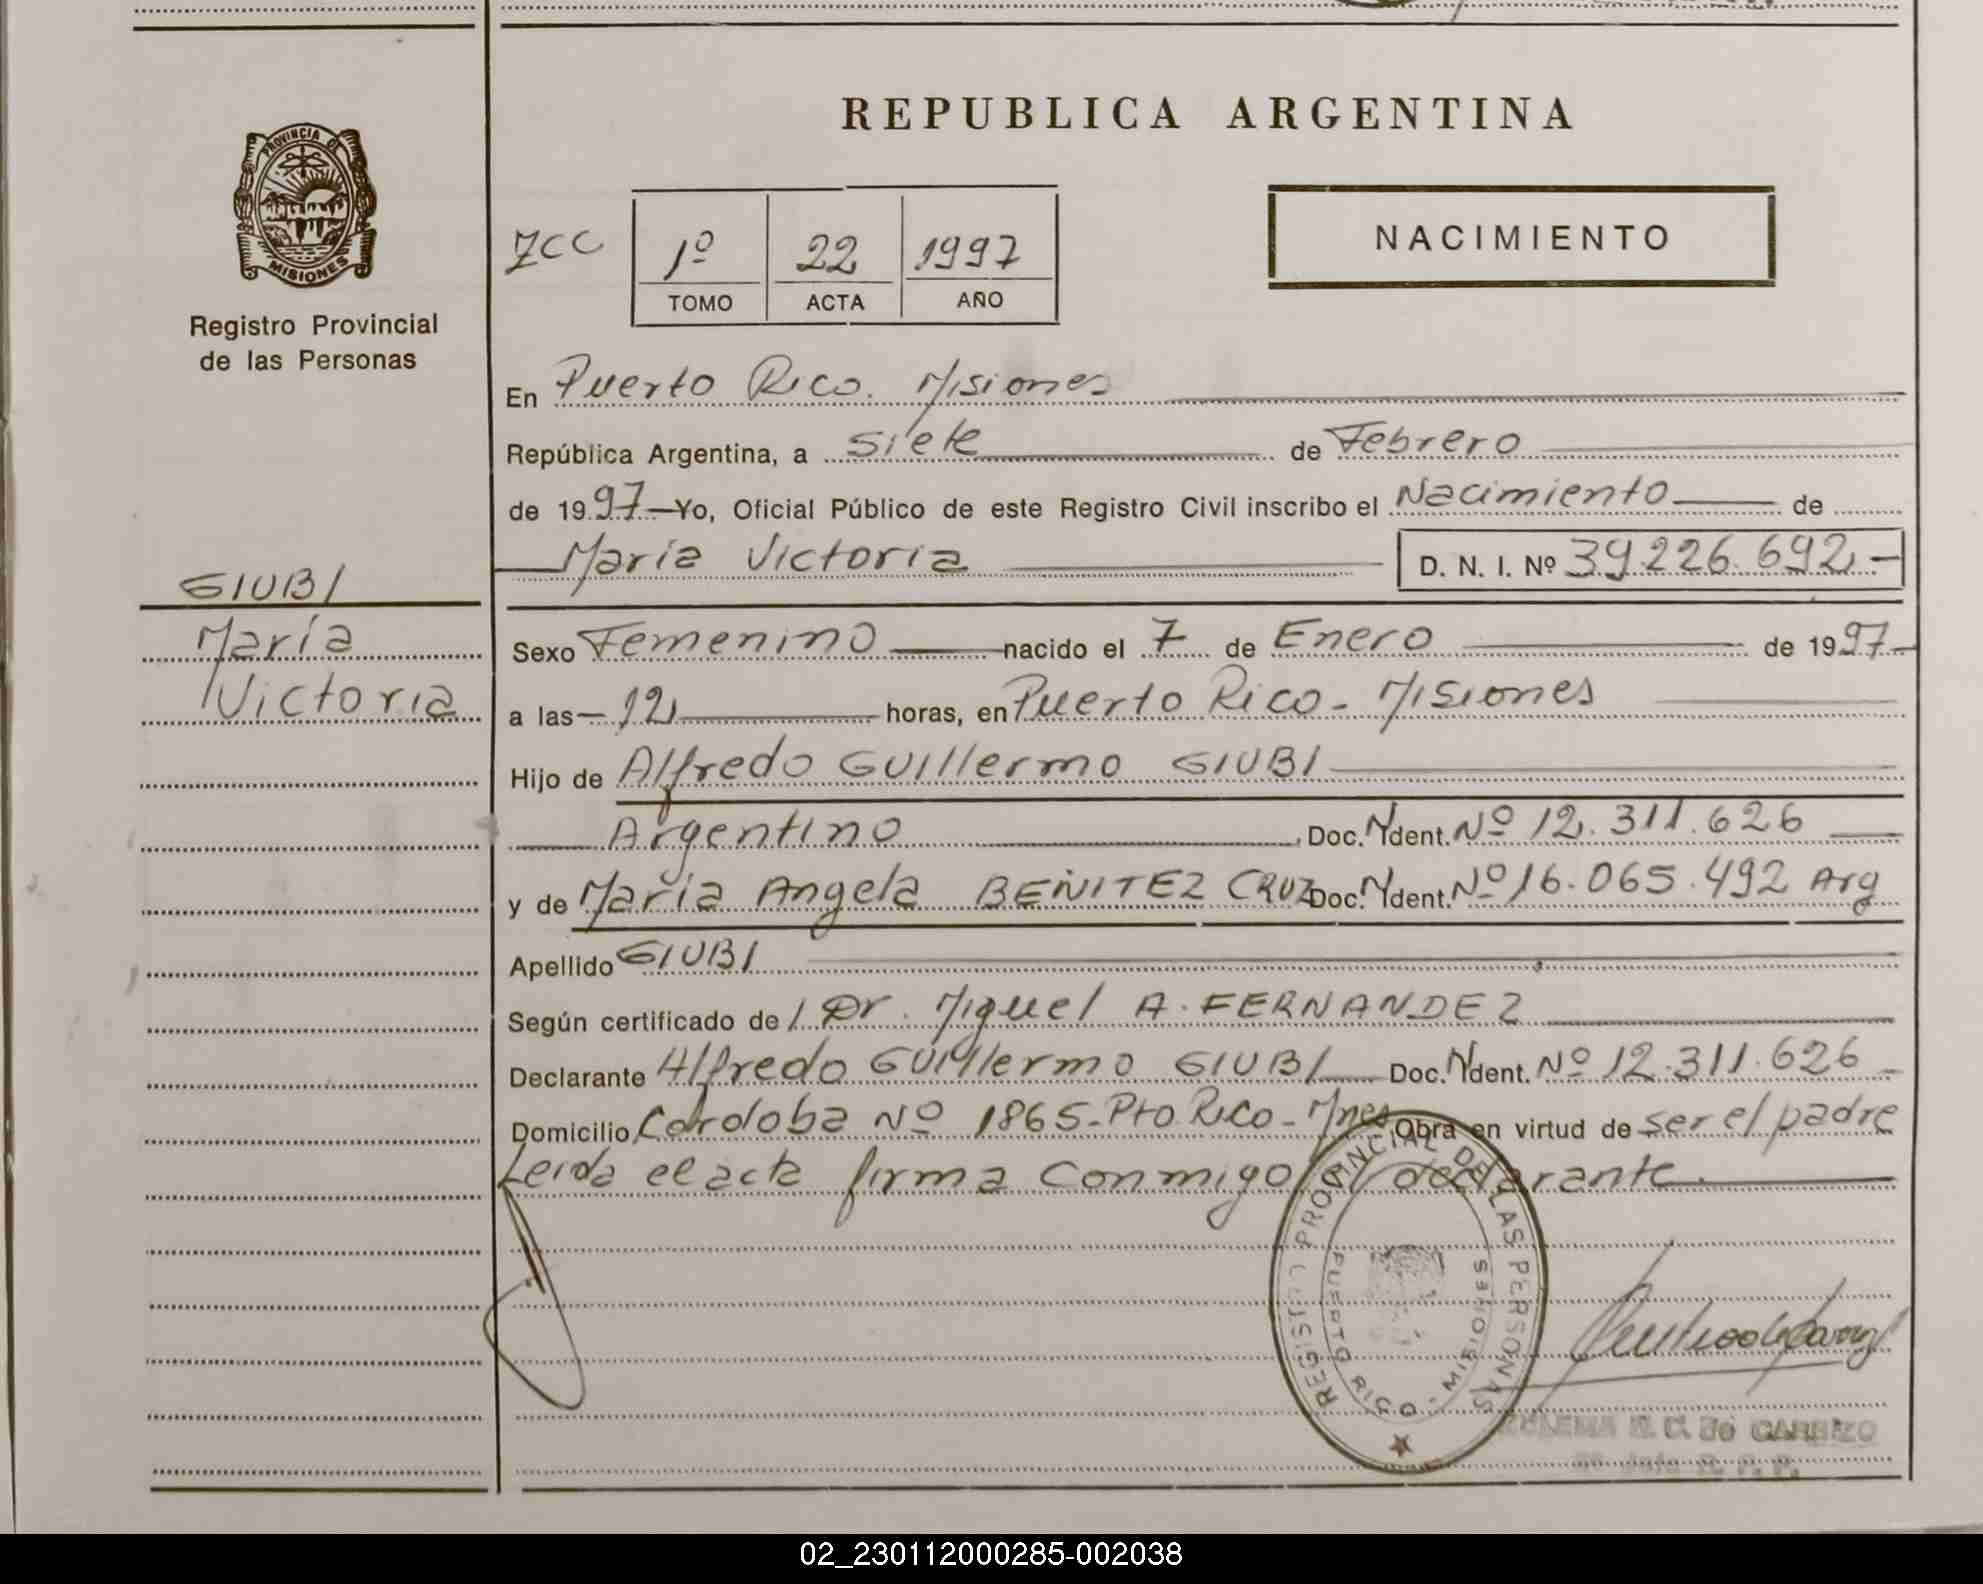 REPUBLICA ARGENTINA
PROVINCIA DE
MISIONES
Registro Provincial
de las Personas
ZCC
1º 22 1997
TOMO ACTA AÑO
NACIMIENTO
En Puerto Rico. Misiones
República Argentina, a siete de Febrero
de 1997 Yo, Oficial Público de este Registro Civil inscribo el Nacimiento de
María Victoria D. N. I. Nº 39.226.692.-
GIUBI
María
Victoria
Sexo Femenino nacido el 7 de Enero de 1997-
a las - 12 horas, en Puerto Rico - Misiones
Hijo de Alfredo Guillermo GIUBI
Argentino Doc. N Ident. Nº 12.311.626
y de María Angela BENITEZ CRUZ Doc. N Ident. Nº 16.065.492 Arg
Apellido GIUBI
Según certificado de / Dr. Miguel A. FERNANDEZ
Declarante Alfredo Guillermo GIUBI Doc. N Ident. Nº 12.311.626
Domicilio Córdoba Nº 1865-Pto Rico - Mnes Obra en virtud de ser el padre
Leida el acta firma conmigo el declarante.
REGISTRO PROVINCIAL DE LAS PERSONAS
PUERTO RICO - MISIONES
ZULEMA de CARRIZO
R. P. P.
02_230112000285-002038